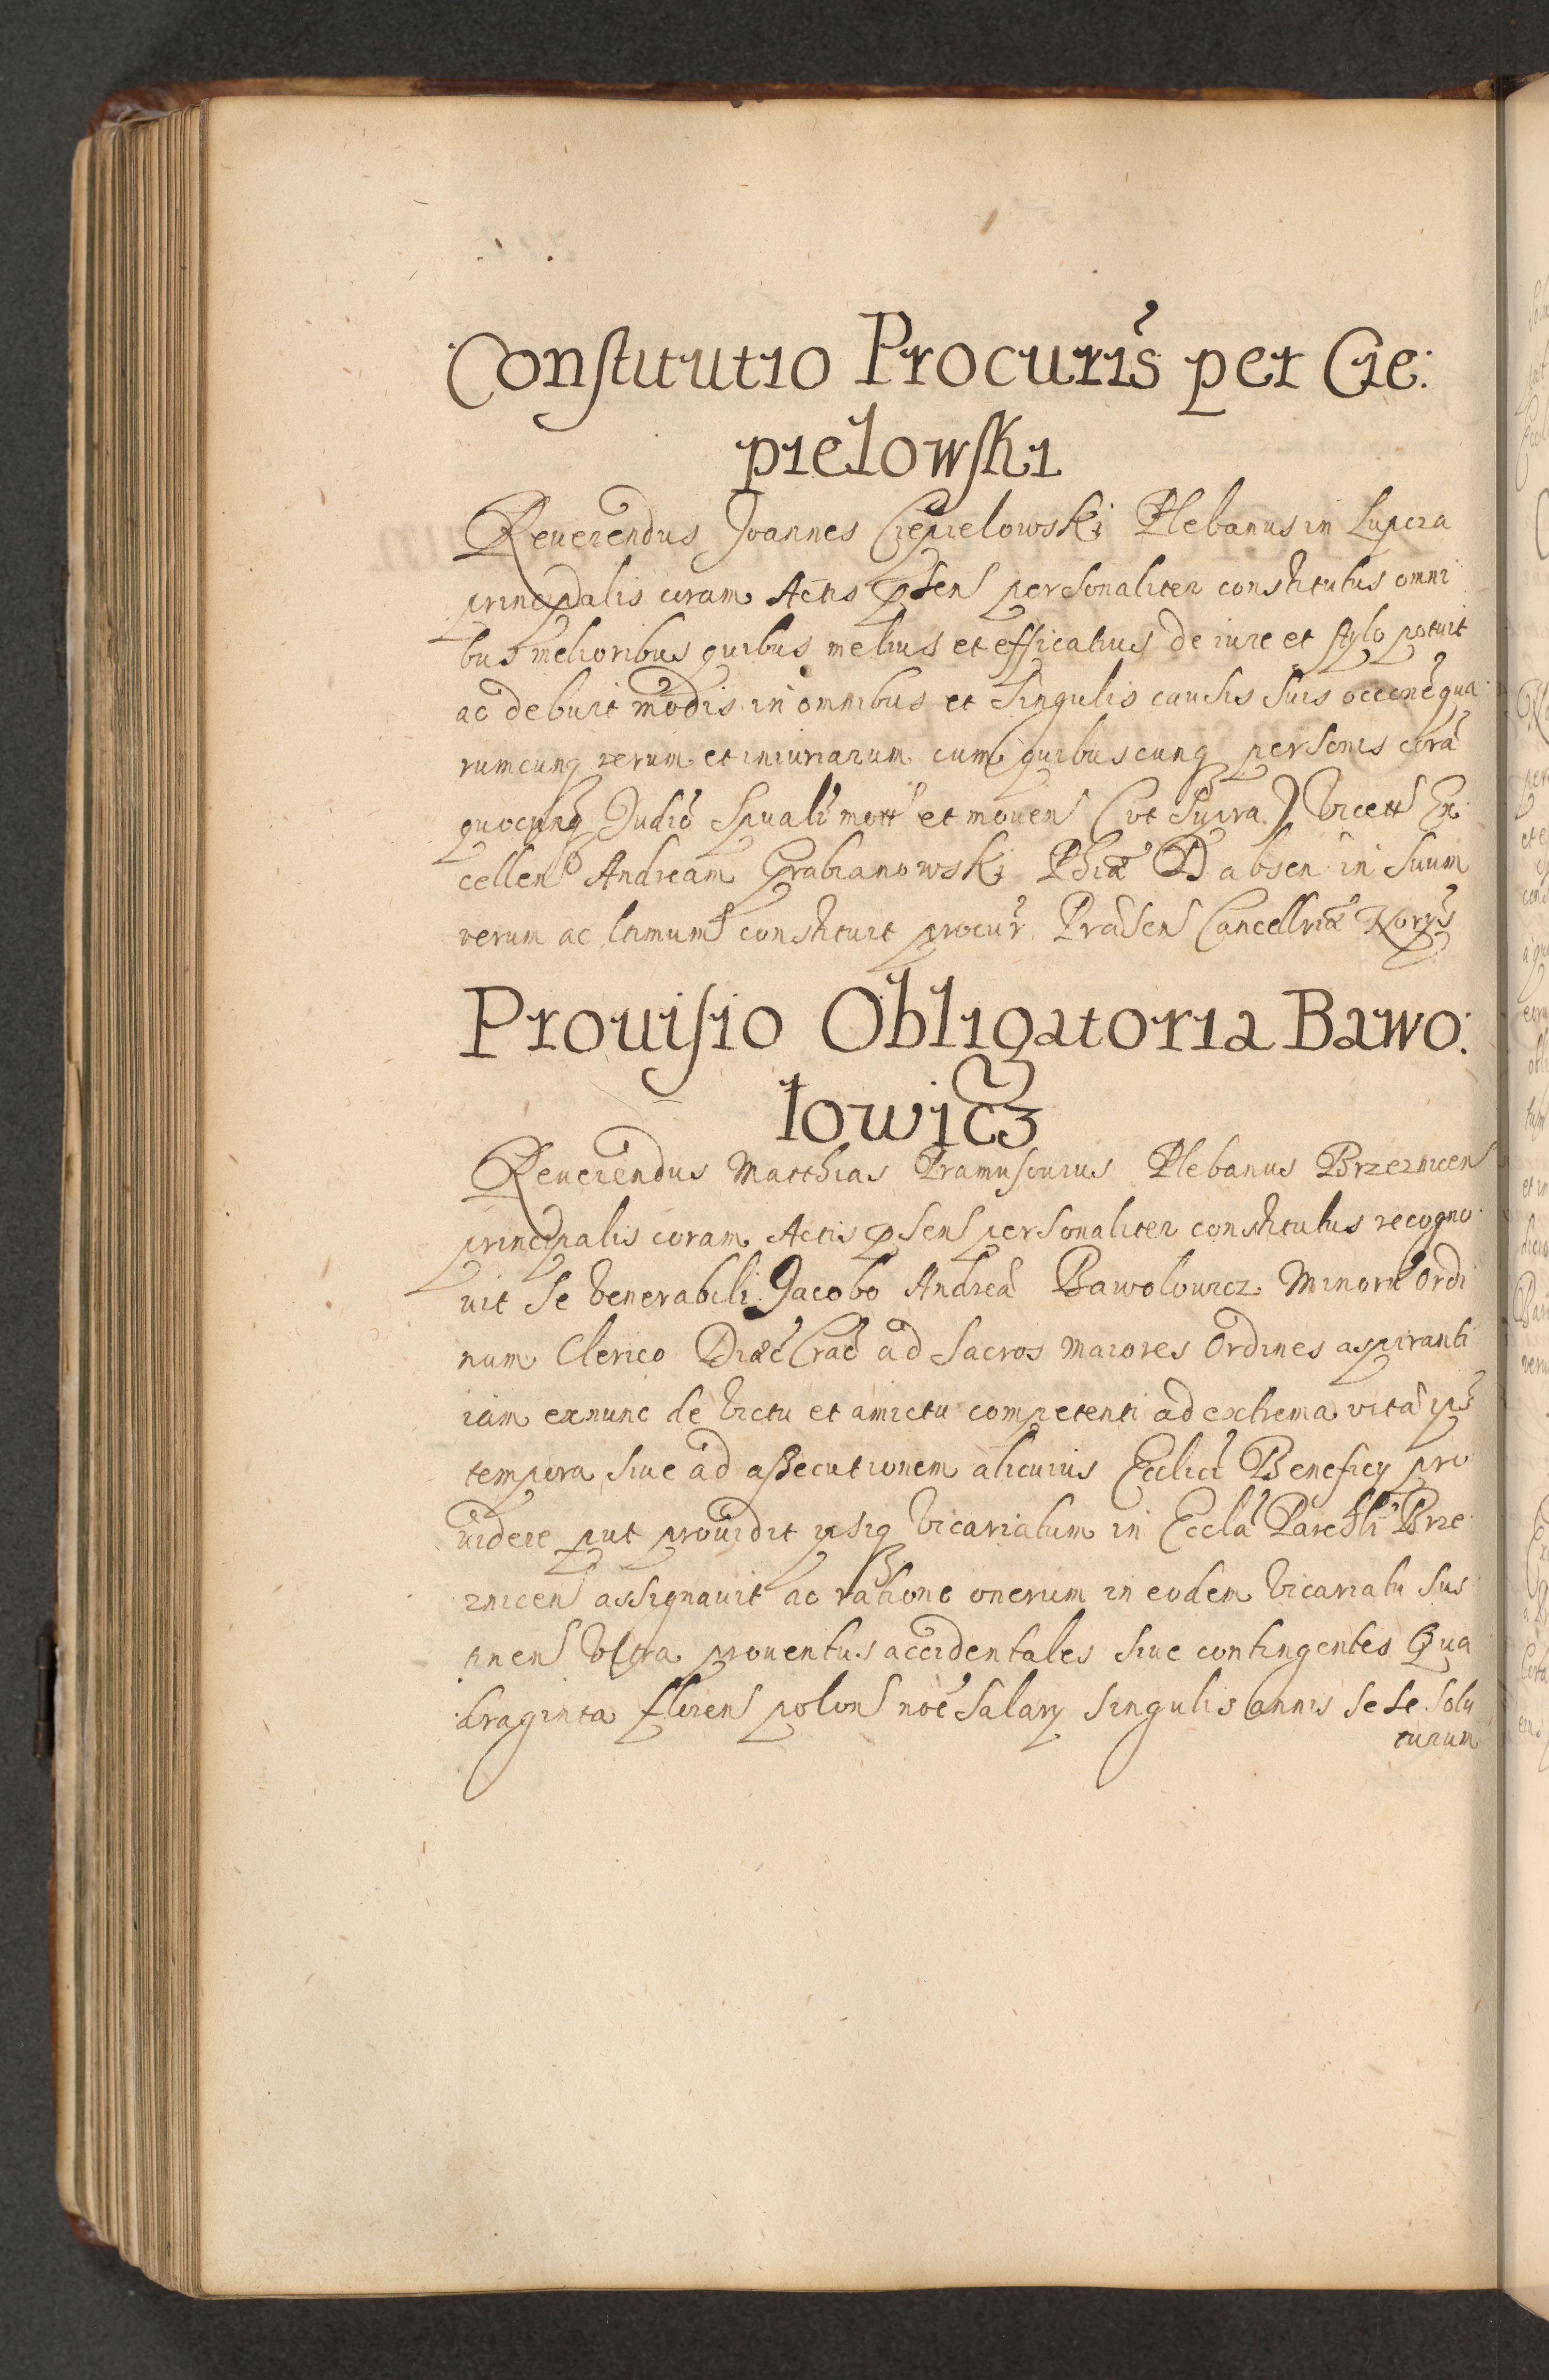 Constitutio Procuris per Cie:
pielowski
Reuerendus Joannes Ciepielowski Plebanus in Lupcza
principalis coram Actis psens personaliter constitutus omni
bus melioribus quibus melius et efficatius de iure et stylo potuit
ac debuit modis in omnibus et singulis causis suis occone qua
rumcunq rerum et iniuriarum cum quibuscunq personis corã
quocunq Judiõ Spuali mott et mouens (vt supra) Vicett Ex
cellen D Andream Grabianowski Phiæ D absen in suum
verum ac ltimum constituit procur. Præsen Cancellriæ Norys
Prouisio Obligatoria Bawo:
lowicz
Reuerendus Matthias Plebanus Brzeznicens
principalis coram Actis psens personaliter constitutus recogno
uit se Venerabili Jacobo Andreæ Bawolowicz Minorũ Ordi
num Clerico Diæc Crac ad Sacros maiores Ordines aspiranti
iam exnunc de Victu et amictu competenti ad extrema vitæ ips
tempora siue ad assecutionem alicuius Ecclici Beneficy pro
uidere put prouidit ipsiq Vicariatum in Eccla Parchli Brze
znicens assignauit ac ratione onerum in eodem Vicariatu sus
tinens Vltra prouentus accidentales siue contingentes Qua
draginta florens polons noe Salary singulis annis sese solu
turum